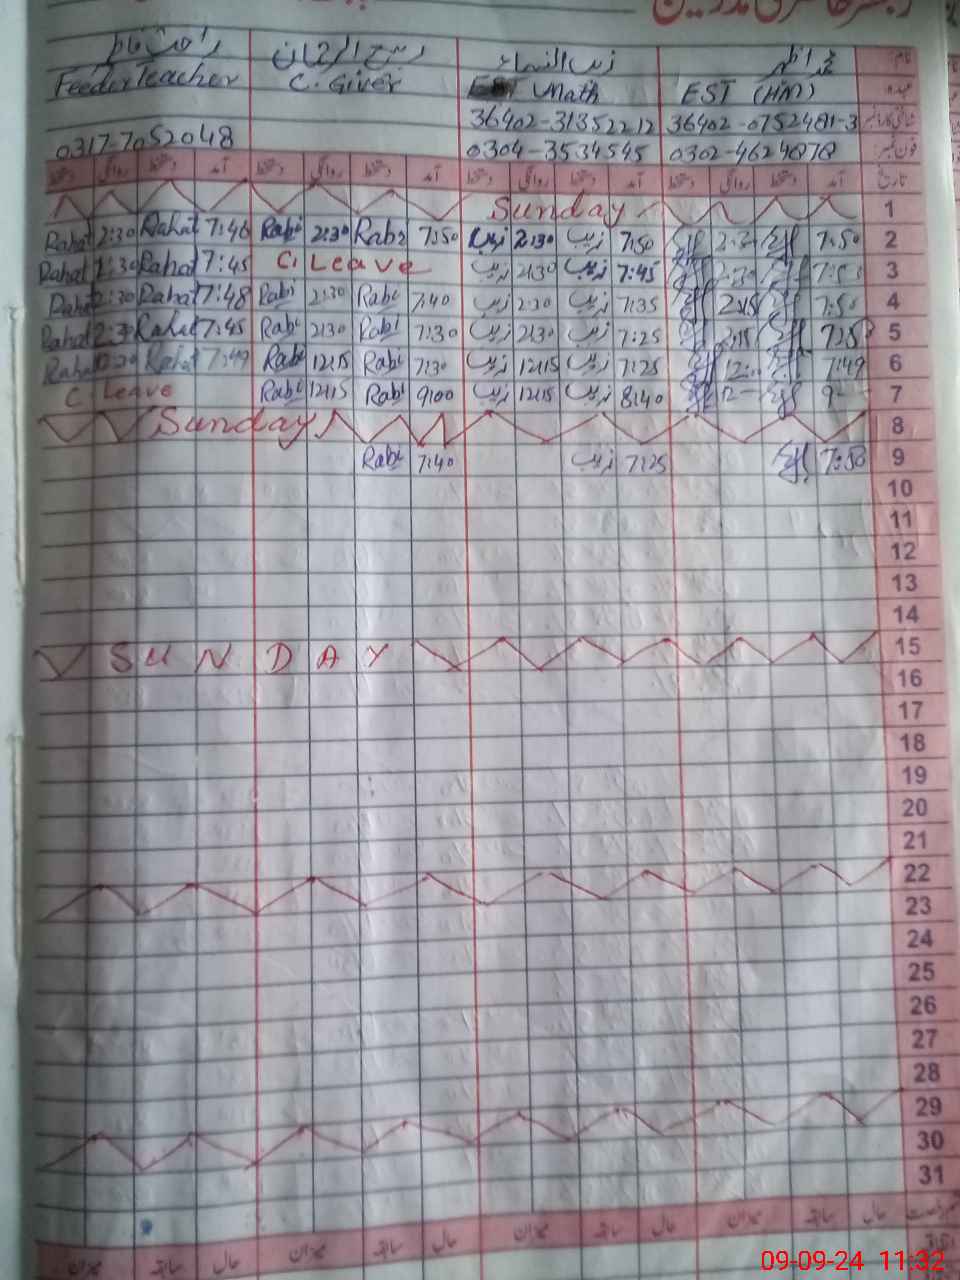 رجسٹر حاضری مدرسین
نام: محمد اظہر زیب النساء ربیع الرحمان راحت
عہدہ EST (HM) EST Math C. Giver Feeder Teacher
36402-0752481-3 36402-3135221 2
فون نمبر: 0302-4624878 0304-3534545 0317-7052048
تاریخ آمد دستخط روانگی دستخط آمد دستخط روانگی دستخط آمد دستخط روانگی دستخط آمد دستخط روانگی دستخط
1 Sunday
Rahat 2:30 Rahat 7:46 Rabi 2:30 Rabi 7:50 زیب 2:30 زیب 7:50 7:50 2
Rahat 2:30 Rahat 7:45 C. Leave زیب 2:30 زیب 7:45 2:30 3
Rahat 2:30 Rahat 7:48 Rabi 2:30 Rabi 7:40 زیب 2:30 زیب 7:35 2:15 7:50 4
Rahat 2:30 Rahat 7:45 Rabi 2:30 Rabi 7:30 زیب 2:30 زیب 7:25 2:15 5
Rahat Rahat 7:49 Rabi 12:15 Rabi 7:30 زیب 12:15 زیب 7:25 7:49 6
C. Leave Rabi 12:15 Rabi 9:00 زیب 12:15 زیب 8:40 7
Sunday 8
Rabi 7:40 زیب 7:25 7:50 9
10
11
12
13
14
SUNDAY 15
16
17
18
19
20
21
22
23
24
25
26
27
28
29
30
31
میزان سابقہ حال میزان سابقہ حال میزان سابقہ حال میزان سابقہ حال
09-09-24 11:32